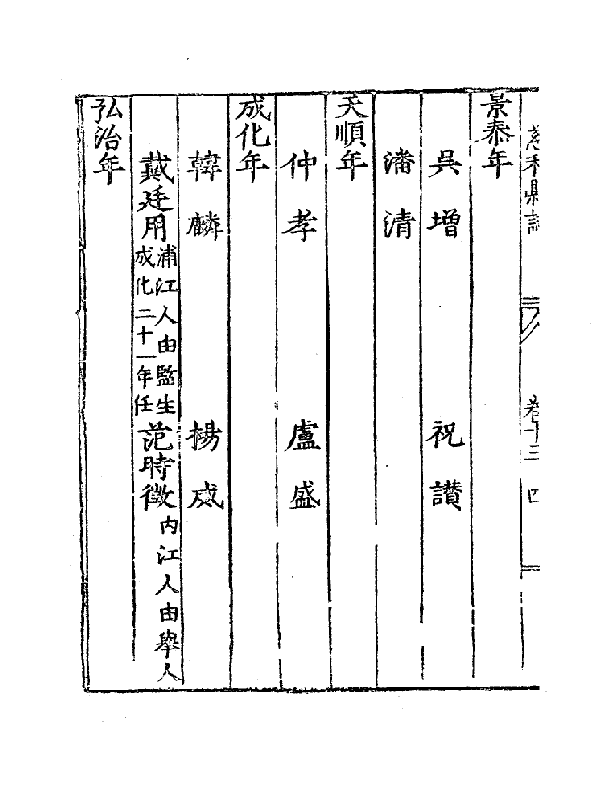 慈利縣誌 卷十三 四
景泰年
吳增 祝讃
潘清
天順年
仲孝 盧盛
成化年
韓麟 楊威
戴廷用 浦江人由監生成化二十一年任 范時徵 内江人由舉人
弘治年